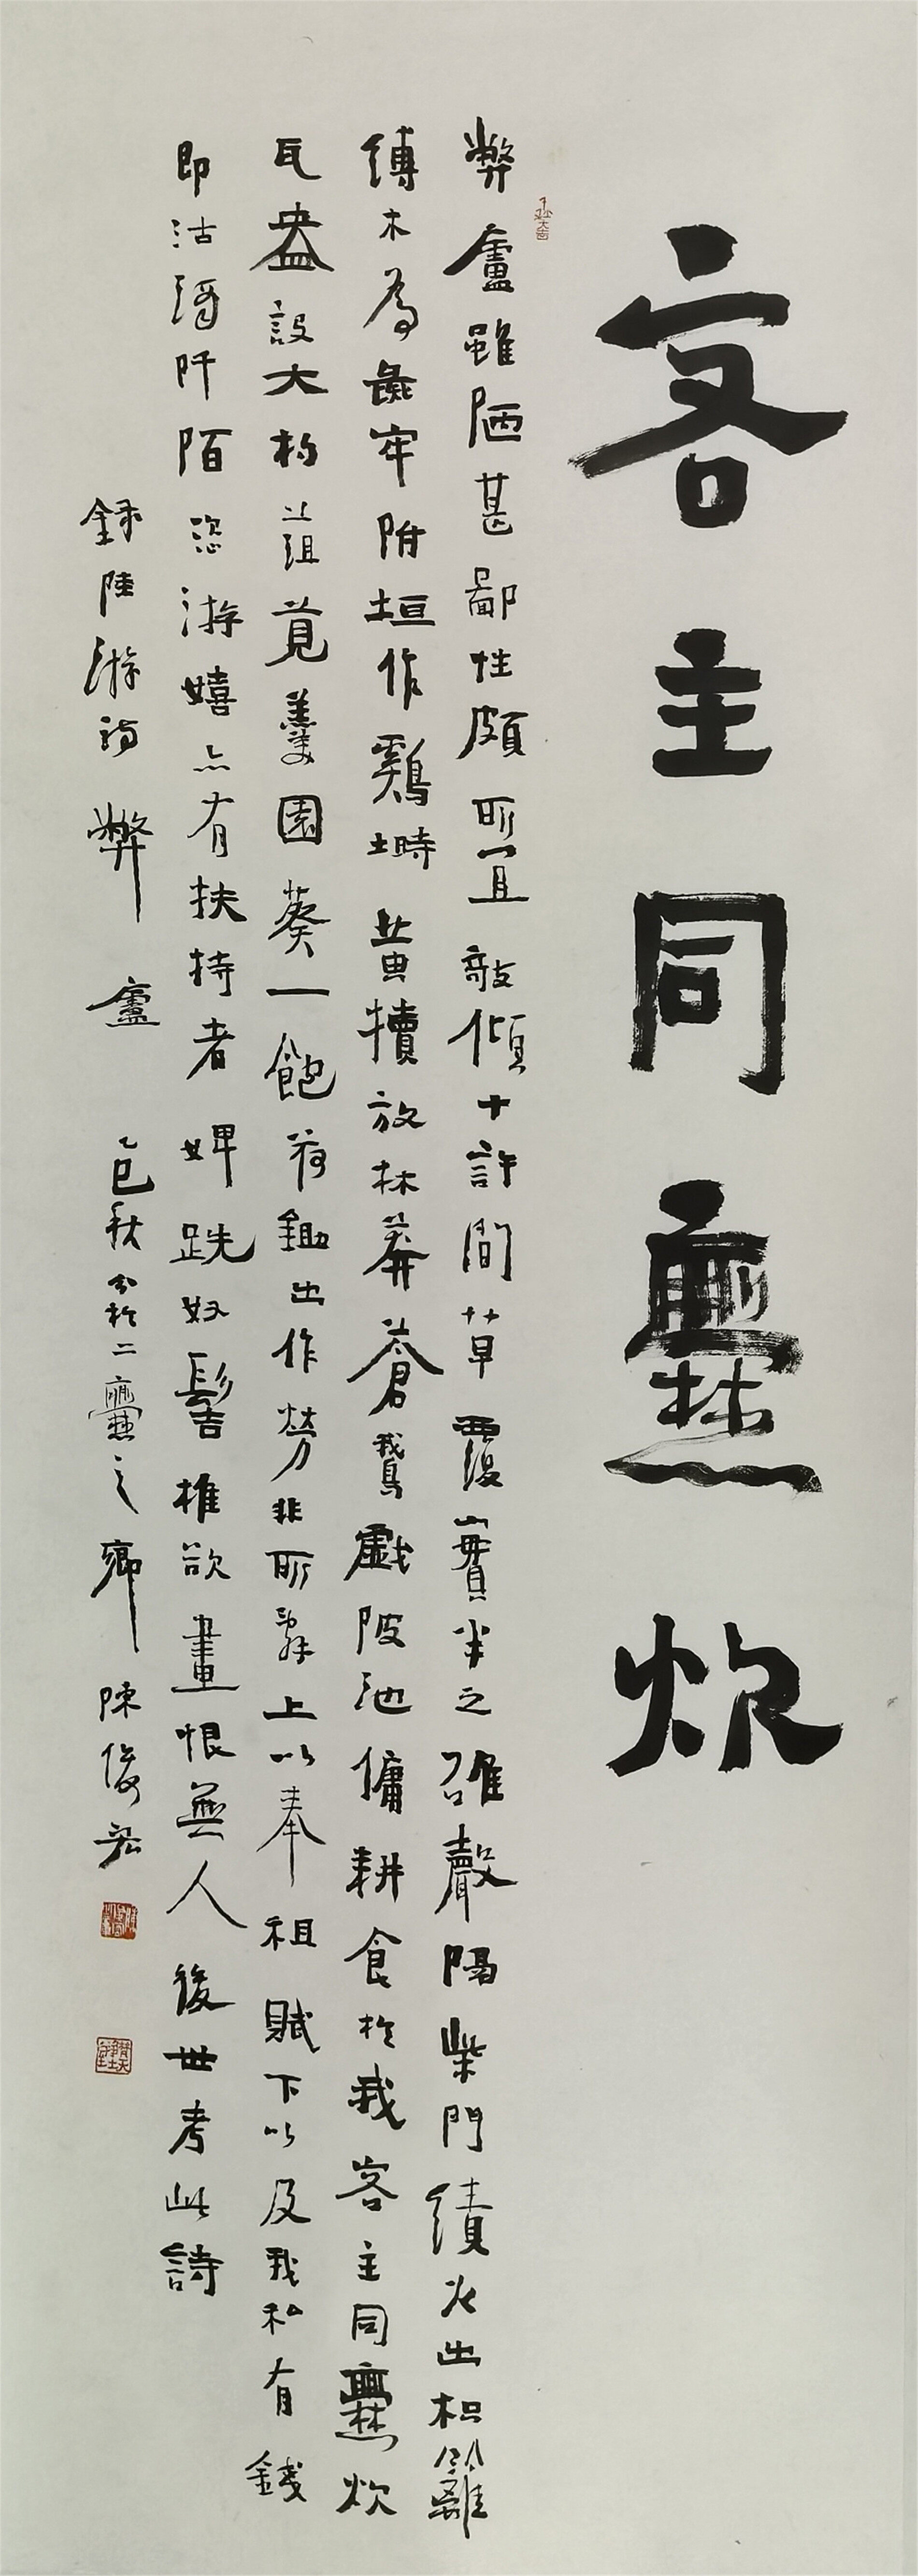 客主同爨炊
弊廬雖陋甚鄙性頗所宜敧傾十許間草覆實半之碓聲隔柴門績火出枳籬
縛木為彘牢附垣作鷄塒黃犢放林莽蒼鵝戲陂池傭耕食於我客主同爨炊
瓦盎設大杓葅莧羹園葵一飽荷鋤出作勞非所辭上以奉租賦下以及我私有錢
即沽酒阡陌恣游嬉亦有扶持者婢跣奴髻椎欲畫恨無人後世考此詩
錄陸游詩弊廬乙巳秋分於二爨之鄉陳俊宏